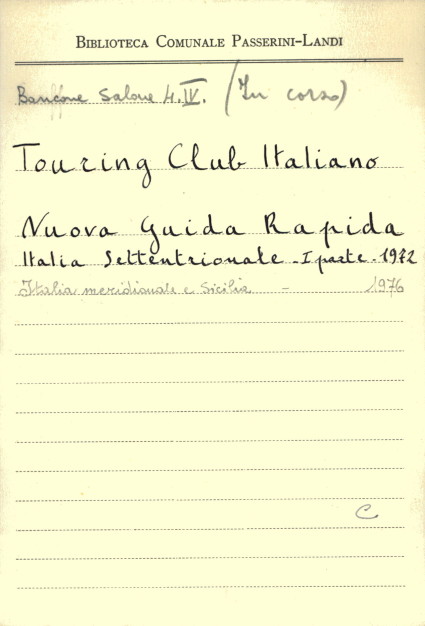 BIBLIOTECA COMUNALE PASSERINI-LANDI
Bancone Salone 4.IV. (In corso)
Touring Club Italiano
Nuova Guida Rapida
Italia Settentrionale - I parte - 1972
Italia meridionale e Sicilia - 1976
C